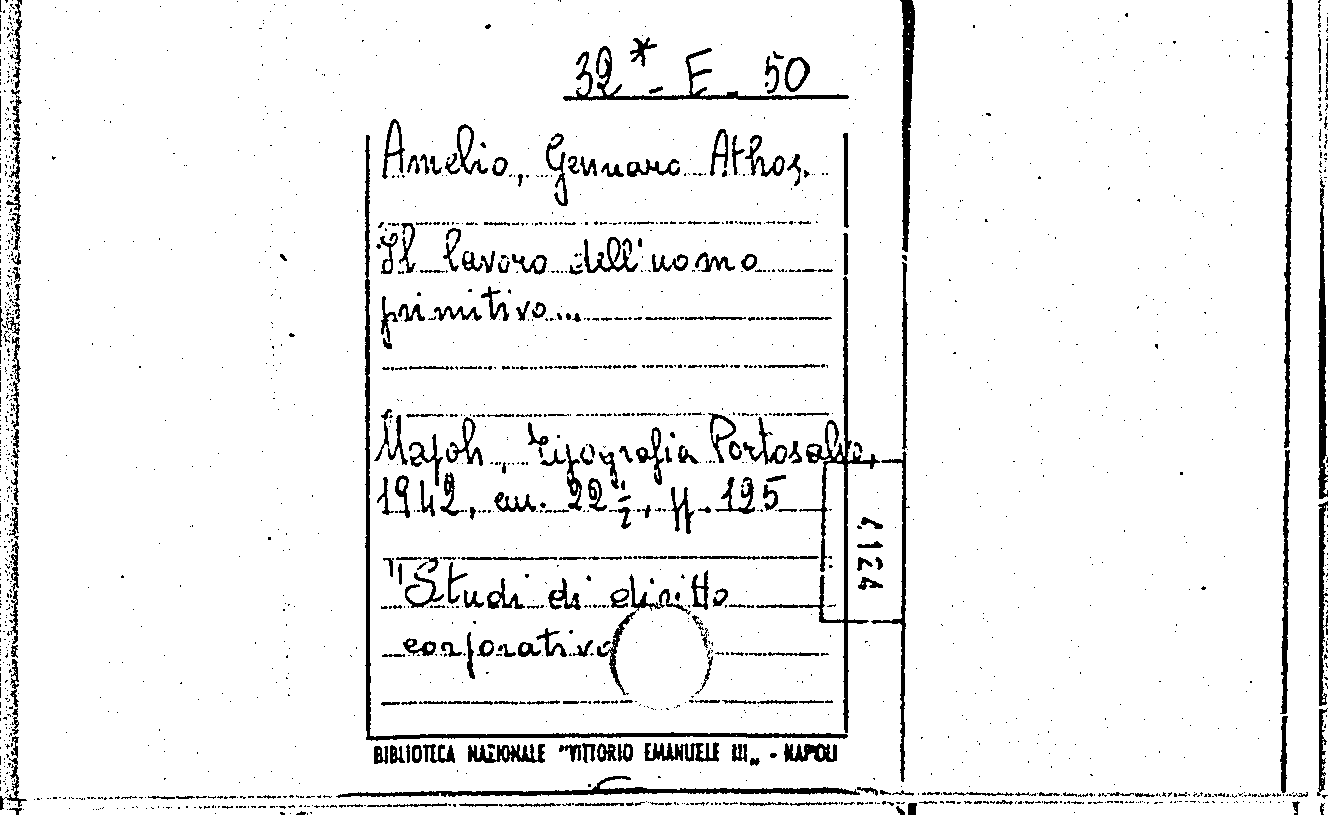 32* - E - 50
Amelio, Gennaro Athos.
Il lavoro dell'uomo
primitivo...
Napoli, Tipografia Portosalvo,
1942, cm. 22½, pp. 195
"Studi di diritto
corporativo
4124
BIBLIOTECA NAZIONALE "VITTORIO EMANUELE III„ - NAPOLI